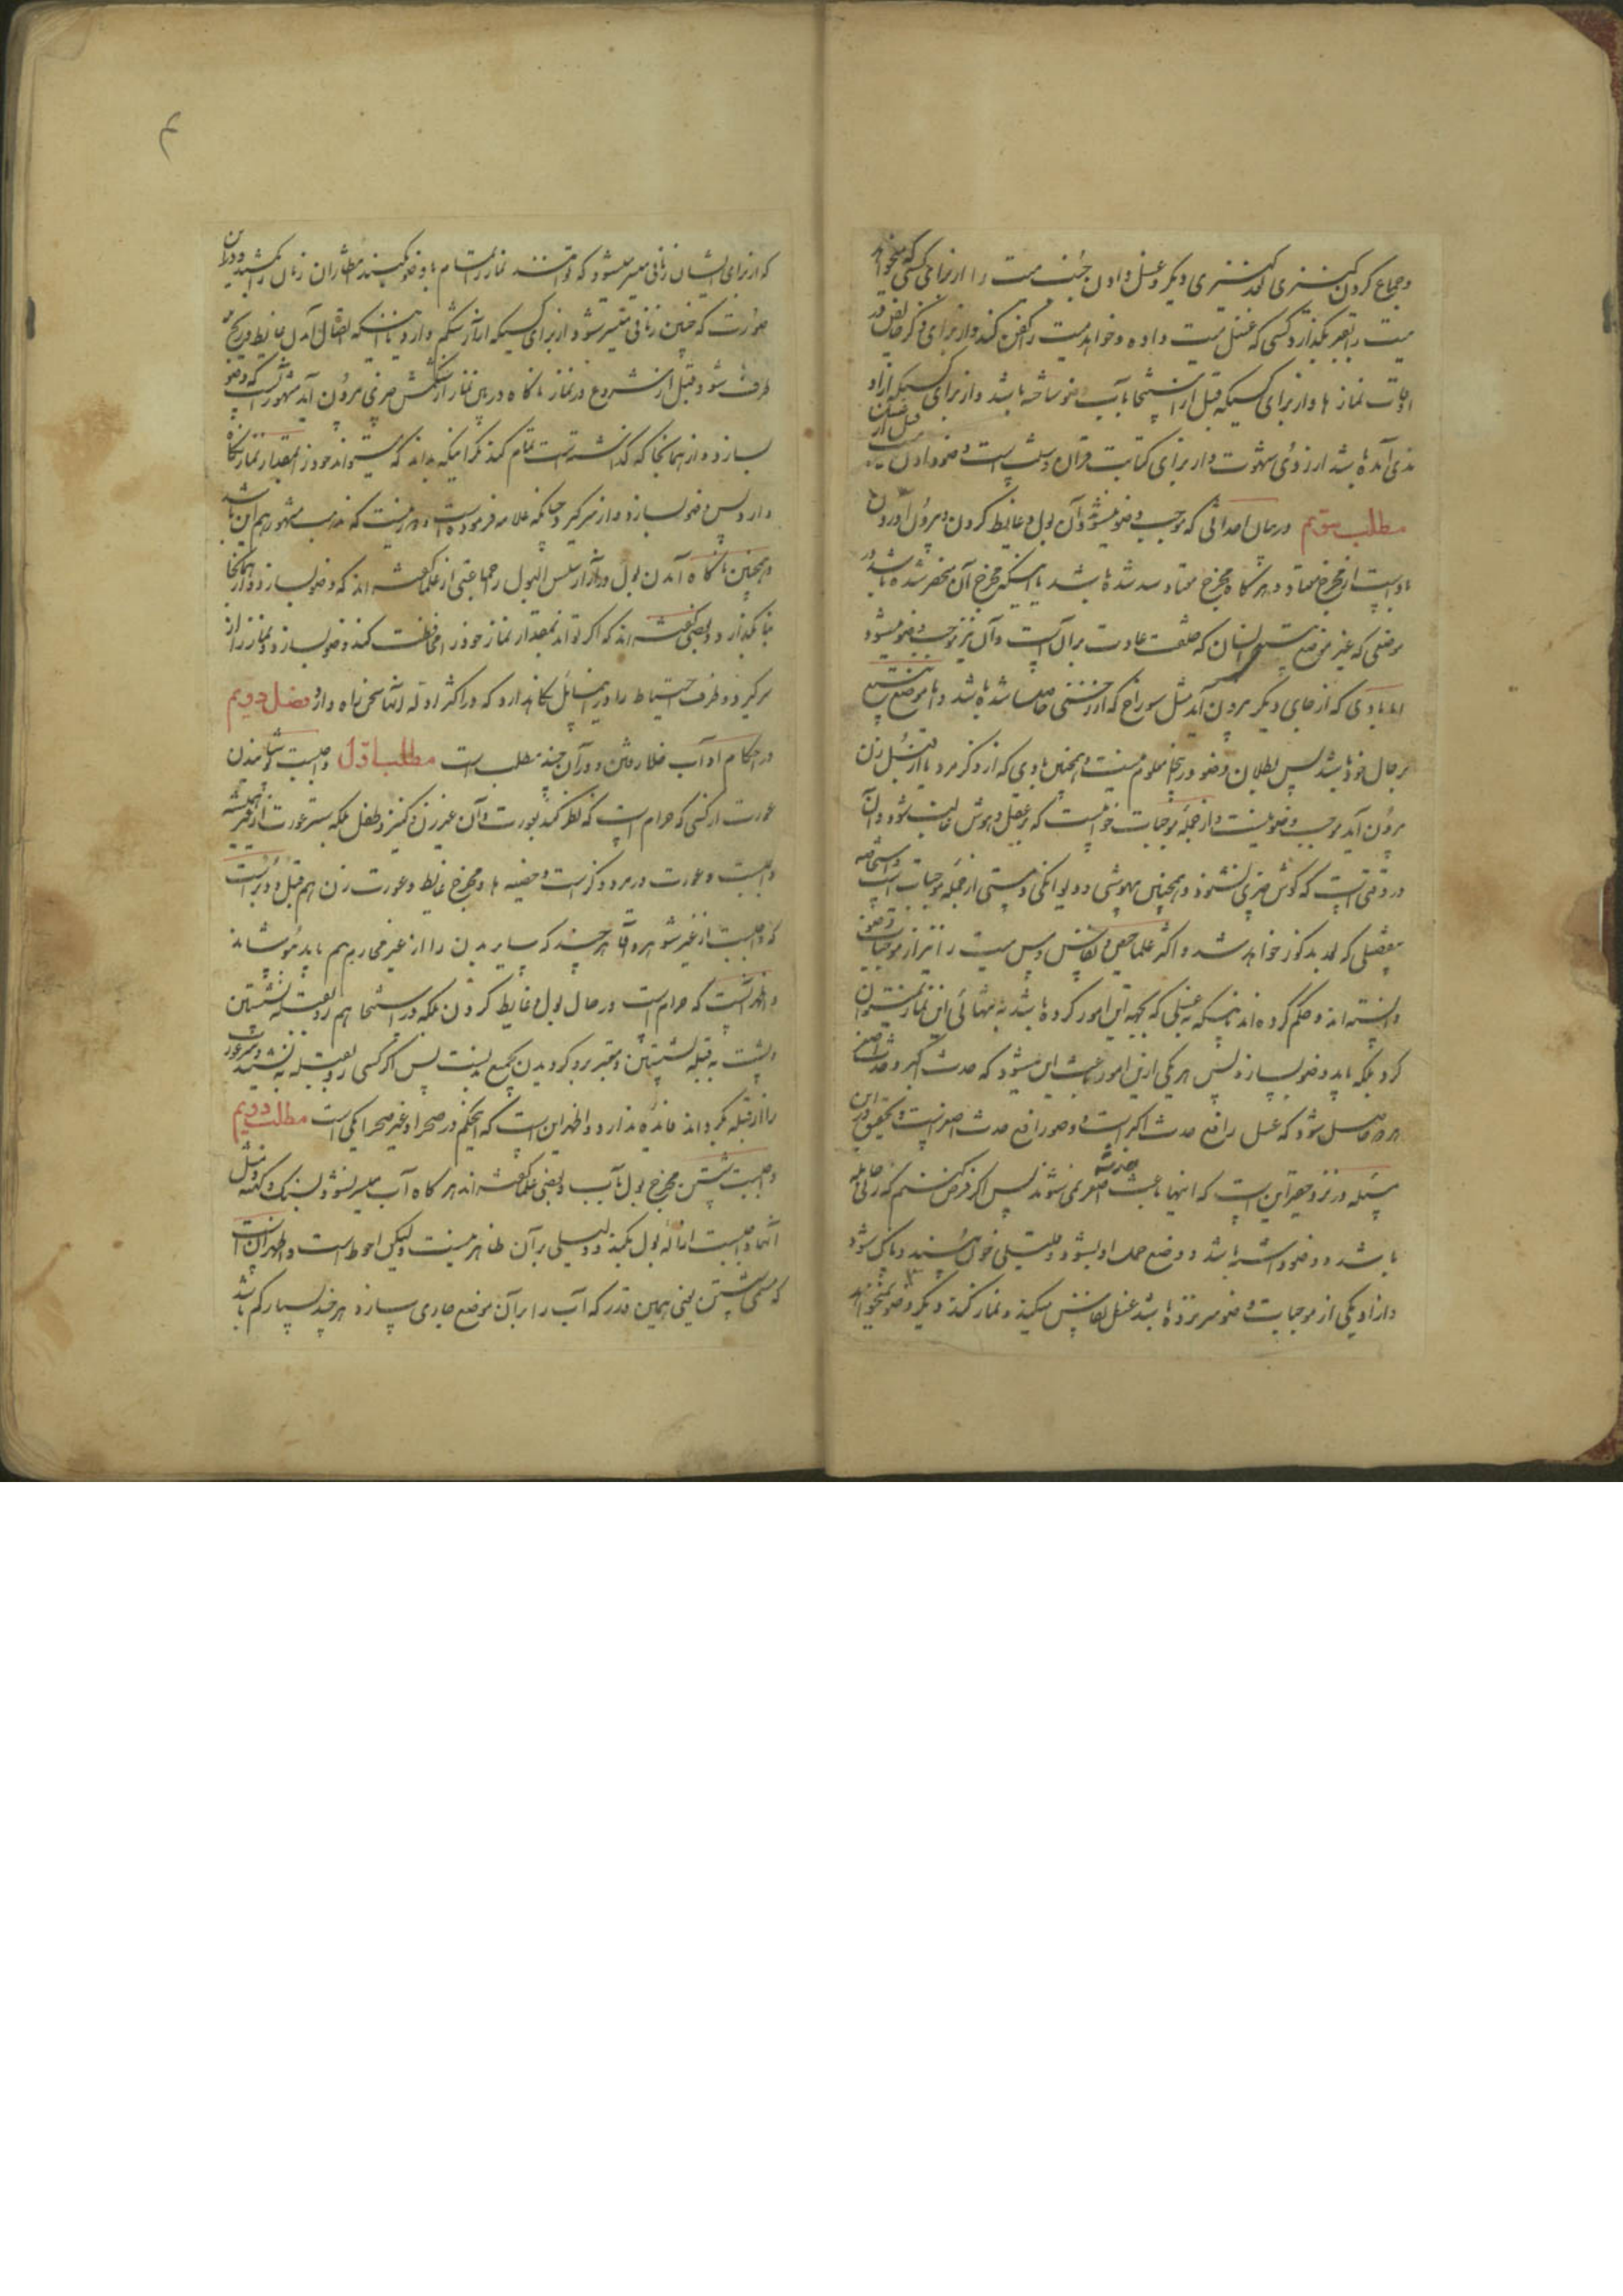 و جماع کردن کنیزی بعد کنیزی دیگر و غسل دادن جنب میت را از برای کسی که میخواهد
میت را بقبر بگذارد کسی که غسل میت داده و خواهد میت را کفن کند و از برای ذکر حایض در
اوقات نماز ها و از برای کسیکه قبل از استنجا بآب وضو ساخته باشد و از برای کسیکه از او
مذی آمده باشد از روی شهوت و از برای کتابت قران و سبب است وضو دادن میت قبل از غسل
مطلب سویم در بیان احداثی که موجب وضو میشود و آن بول و غایط کردن و بیرون آوردن
باد است از مخرج معتاد و هر گاه مخرج معتاد سد شده باشد یا اینکه مخرج آن منحصر شده باشد در
موضعی که غیر موضع انسان که خلقت عادت بر آن است و آن نیز موجب وضو میشود
اما بادی که از جای دیگر بیرون آید مثل سوراخ که از زخمی حاصل شده باشد و با موضع
بر حال خود باشد پس بطلان وضو در اینجا معلوم نیست و همچنین بادی که از ذکر مرد یا از قبل زن
بیرون آید موجب وضو نیست و از جمله موجبات خوابیست که بر عقل و هوش غالب شود و آن
در وقتی است که گوش چیزی نشنود و همچنین بیهوشی و دیوانگی و مستی از جمله موجبات است و استحاضه
بتفصیلی که بعد مذکور خواهد شد و اکثر علما حیض و نفاس و مس میت را نیز از موجبات وضو
دانسته اند و حکم کرده اند باینکه به غسلی که بجهة این امور کرده باشد به تنهائی این نماز نمیتوان
کرد بلکه باید وضو بسازد پس هر یکی ازین امور باعث این میشود که حدث اکبر و حدث اصغر
هر دو حاصل شود که غسل رافع حدث اکبر است و وضو رافع حدث اصغر است و تحقیق در این
مسئله در نزد حقیر این است که اینها باعث حدث اصغر نمی شوند پس اگر فرض کنیم که زن حامله
باشد و وضو داشته باشد و وضع حمل او بشود و قلیلی خون به بیند و پاک شود
و از او یکی از موجبات وضو سر نزده باشد غسل نفاس میکند و نماز کند و دیگر وضو نمیخواهد
که از برای ایشان زمانی میسر میشود که توانند نماز را تمام با وضو بکنند منتظر آن زمان را بکشید و در این
صورت که چنین زمانی متیسر شود از برای کسیکه آزار شکم دارد باینکه اتصال آمدن غایط و ریح
برطرف شود قبل از شروع در نماز ناگاه در بین نماز از شکمش چیزی بیرون آید مشهور آنست که وضو
بسازد و از همانجا که گذاشته است تمام کند مگر اینکه بداند که میتواند خود را بمقدار نماز نگاه
دارد پس وضو بسازد و از سر گیرد چنانکه علامه فرموده است و دور نیست که مذهب مشهور هم این باشد
و همچنین ناگاه آمدن بول در آزار سلس البول و جماعتی از علما گفته اند که وضو بسازد و از همانجا
بنا بگذارد و بعضی گفته اند که اگر تواند بمقدار نماز خود را محافظت کند وضو بسازد و نماز را از
سر گیرد و طرف احتیاط را در این مسایل نگاهدارد که در اکثر ادله اینها سخن راه دارد فصل دویم
در احکام آداب خلا رفتن و در آن چند مطلب است مطلب اول واجبست پوشانیدن
عورت از کسی که حرام است که نظر کند بعورت و آن غیر زن و کنیز و طفل بلکه ستر عورت از غیر همیشه
واجبست و عورت در مرد ذکر است و خصیه ها و مخرج غایط و عورت زن هم قبل و دبر است
که واجبست از غیر شوهر و آقا هر چند که سایر بدن را از غیر محارم هم باید پوشاند
و اظهر آنست که حرام است در حال بول و غایط کردن بلکه در استنجا هم رو بقبله نشستن
و پشت به قبله نشستن و معتبر رو کردن بجمیع بدنست پس اگر کسی رو بقبله به نشیند و عورت
را از قبله بگرداند فایده ندارد و اظهر این است که اینحکم در صحرا و غیر صحرا یکی است مطلب دویم
واجبست شستن مخرج بول بآب و بعضی علما گفته اند هر گاه آب میسر نشود بسنگ و کهنه و مثل
آنها واجبست ازاله بول بکند و دلیلی بر آن ظاهر نیست و لیکن احوط است و اظهر آن است
که مسمی شستن یعنی همین قدر که آب را بر آن موضع جاری سازد هر چند بسیار کم باشد